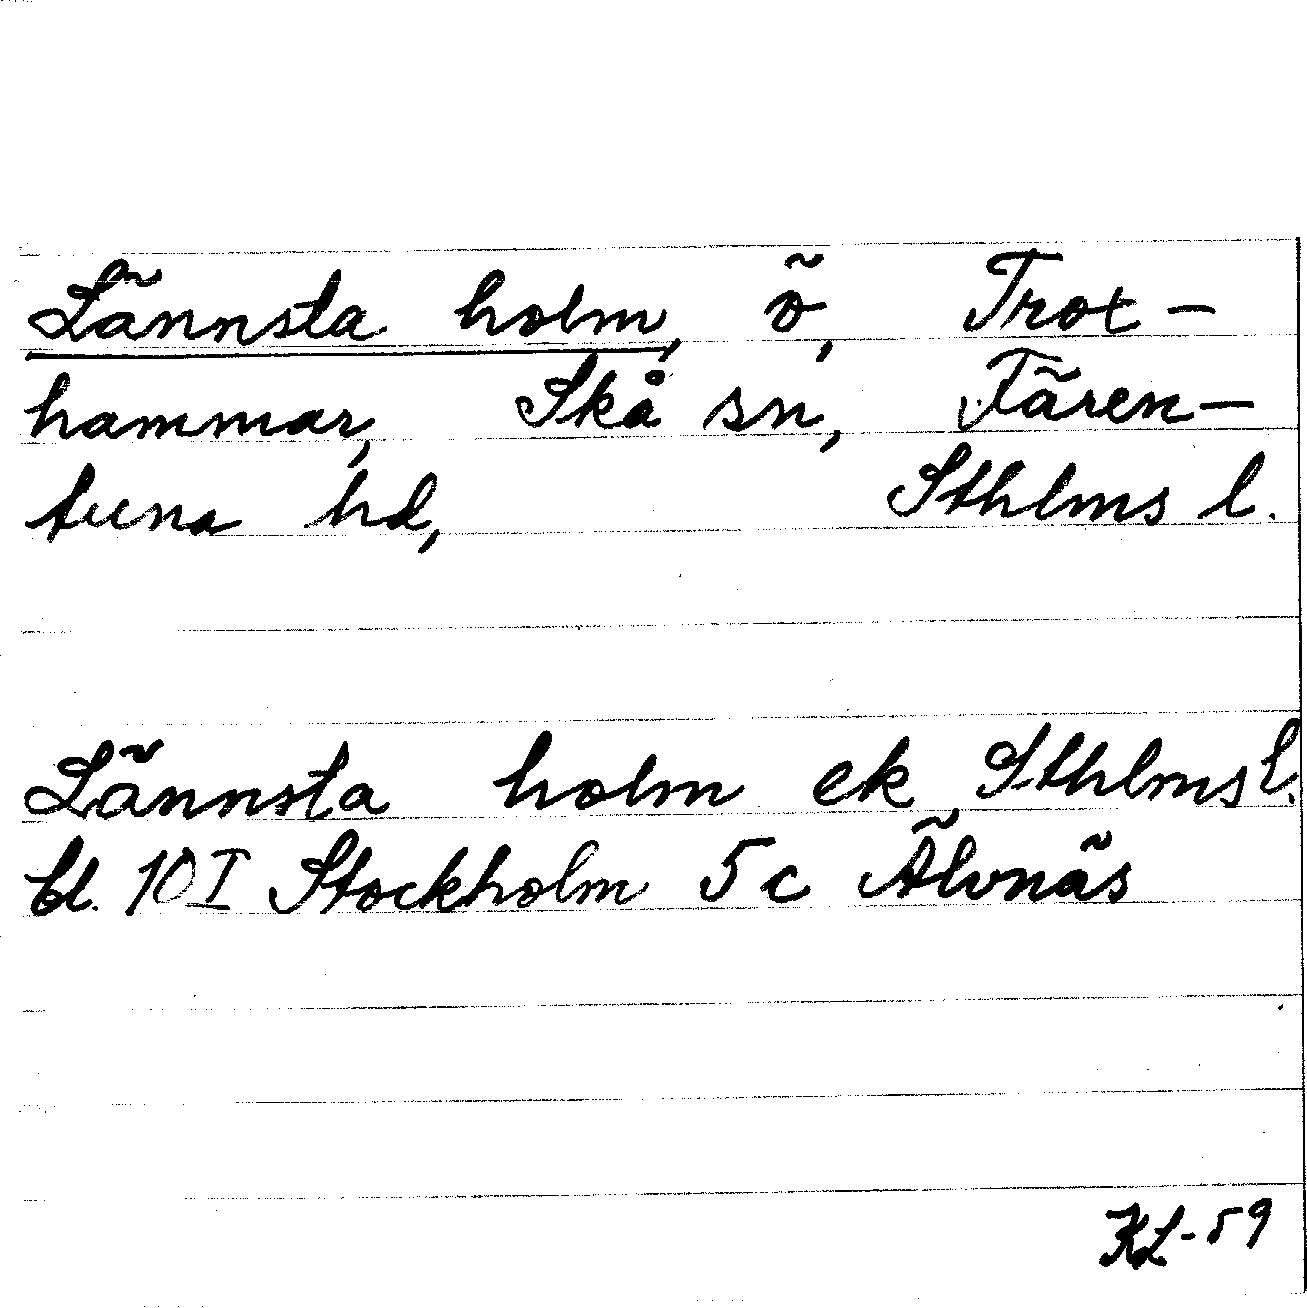 Lännsta holm, ö, Trot-
hammar, Skå sn, Fären-
tuna hd, Sthlms l.
Lännsta holm ek Sthlms l.
bl. 10 I Stockholm 5 c Älvnäs
KL-59